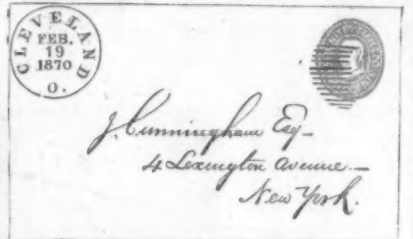 CLEVELAND
FEB.
19
1870
O.
J. Cunningham Esq–
4 Lexington Avenue.–
New York.